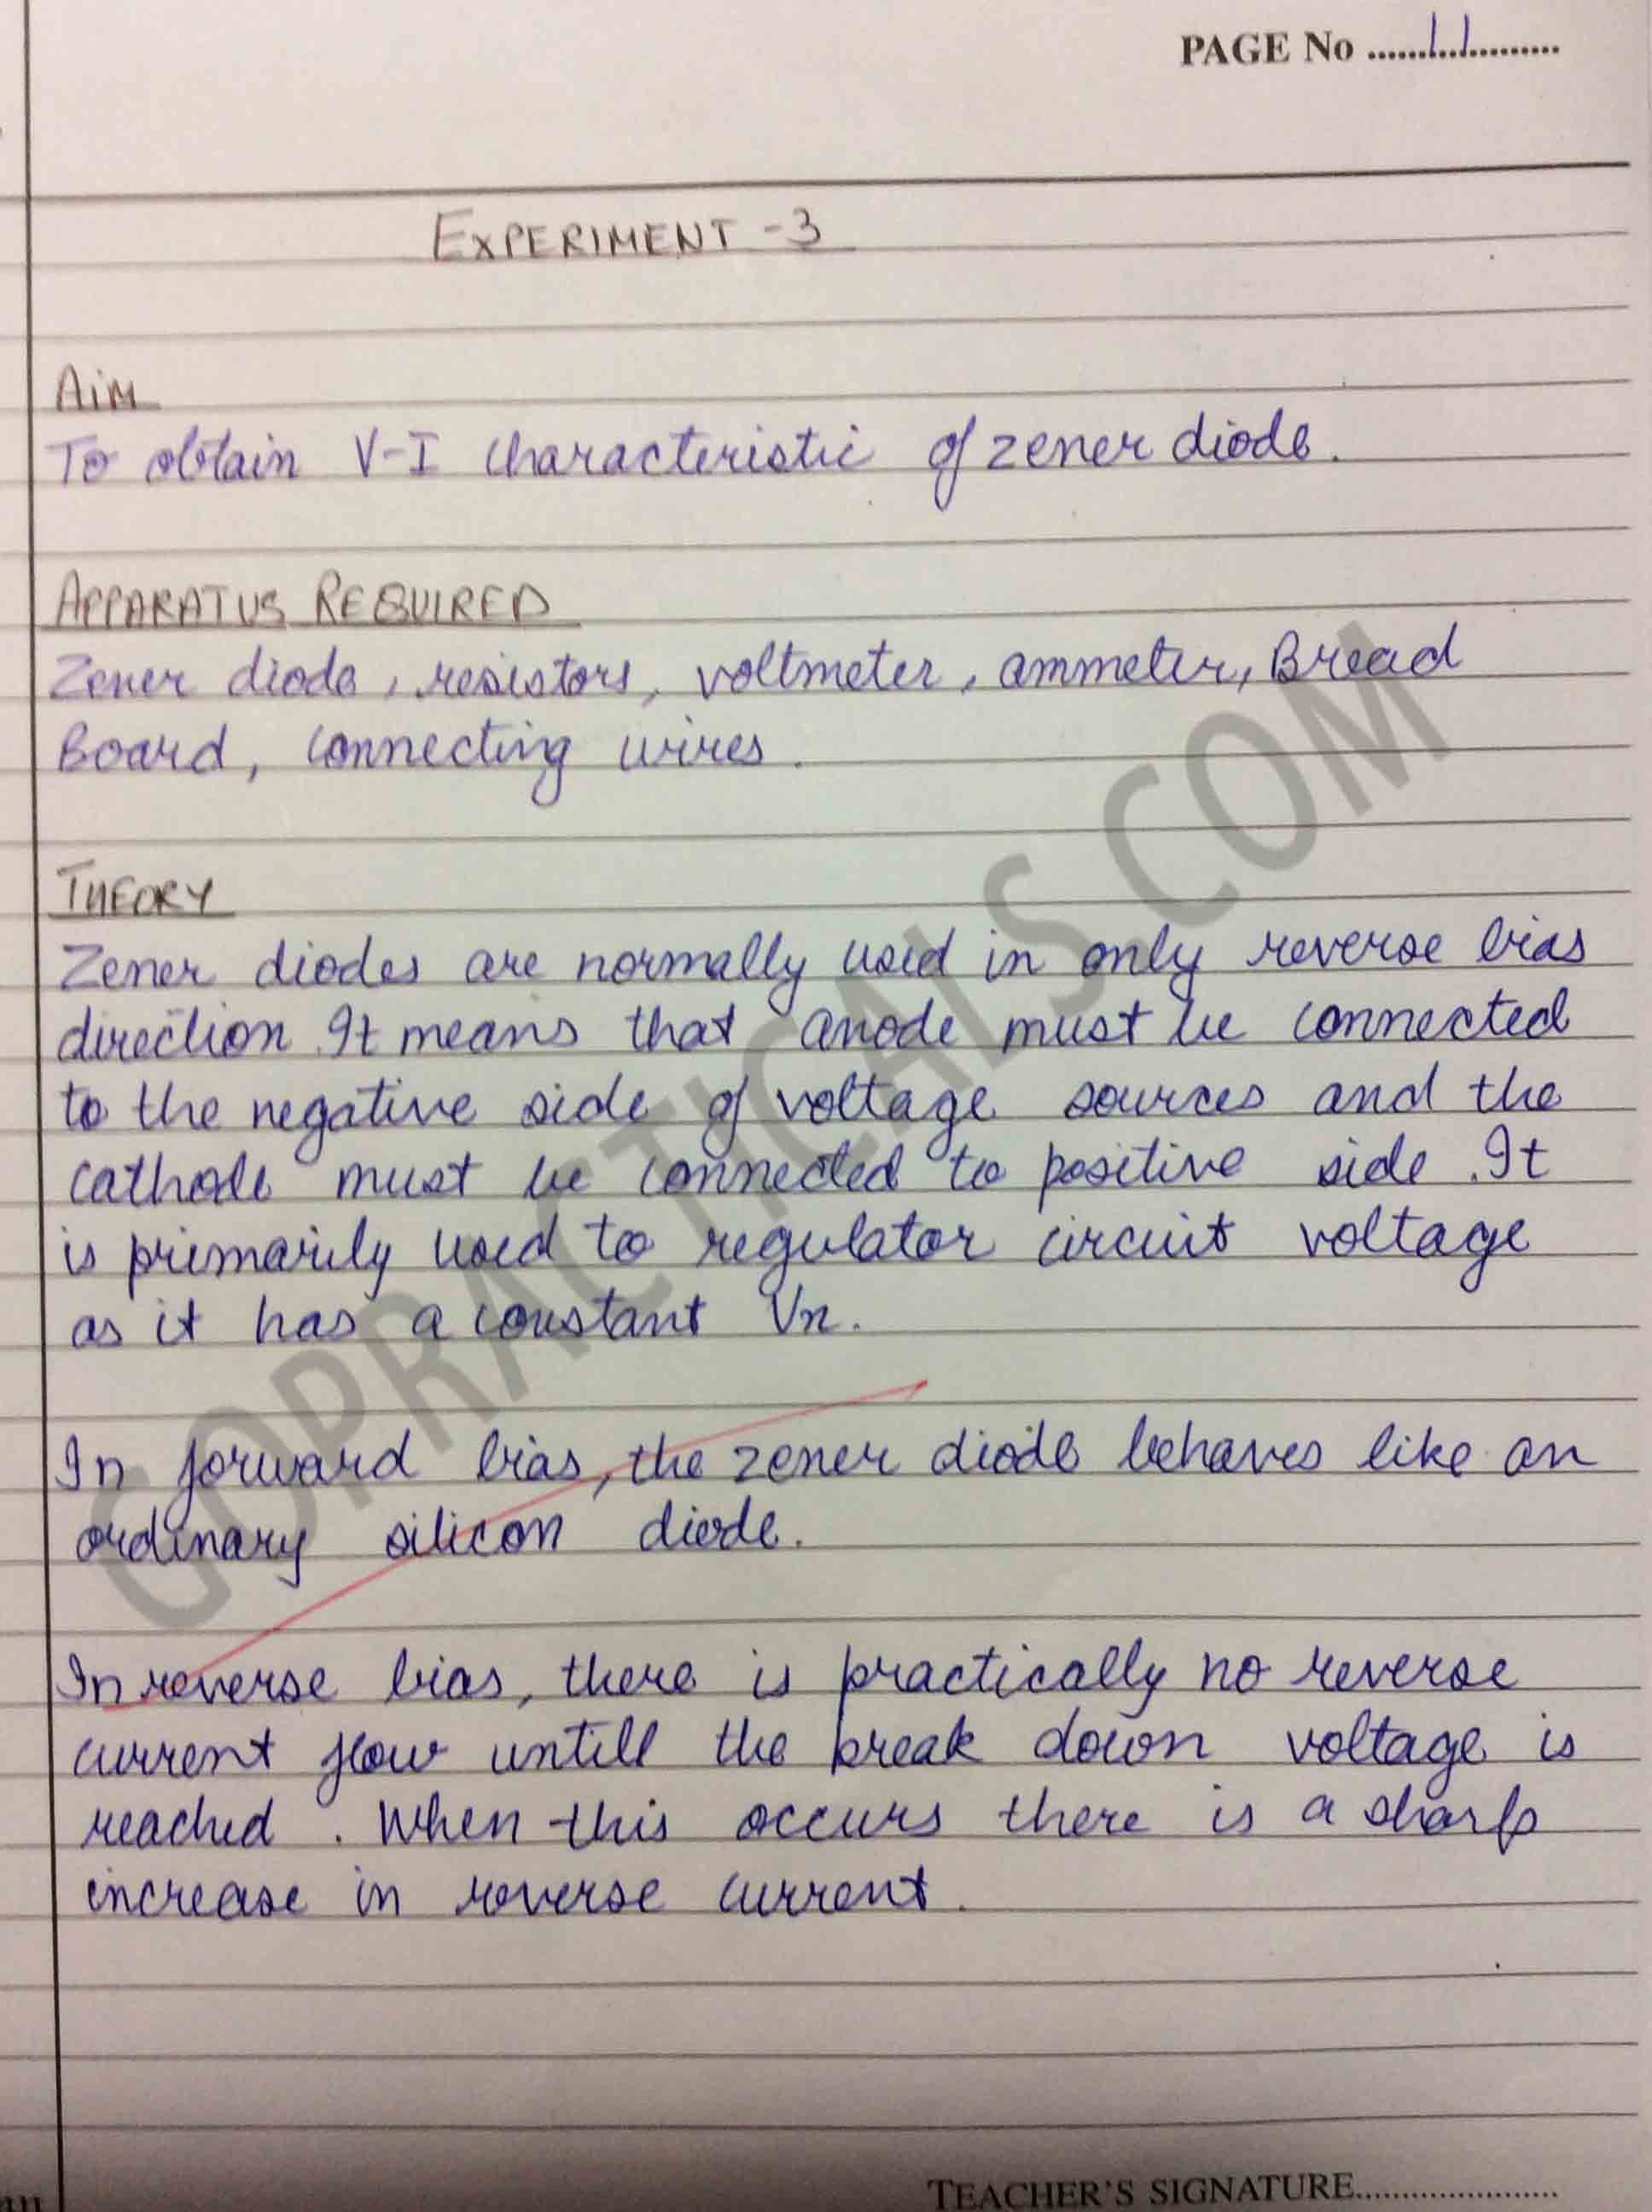 PAGE No ......11..........
EXPERIMENT -3
AiM
To obtain V-I characteristic of zener diode.
APPARATUS REQUIRED
Zener diode, resistors, voltmeter, ammeter, Bread
Board, connecting wires.
THEORY
Zener diodes are normally used in only reverse bias
direction. It means that anode must be connected
to the negative side of voltage sources and the
cathode must be connected to positive side. It
is primarily used to regulator circuit voltage
as it has a constant Vr.
In forward bias, the zener diode behaves like an
ordinary silicon diode.
In reverse bias, there is practically no reverse
current flow untill the break down voltage is
reached. When this occurs there is a sharp
increase in reverse current.
GOPRACTICALS.COM
TEACHER'S SIGNATURE......................